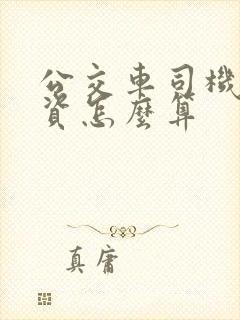 公交车司機
资怎麼算
真庸